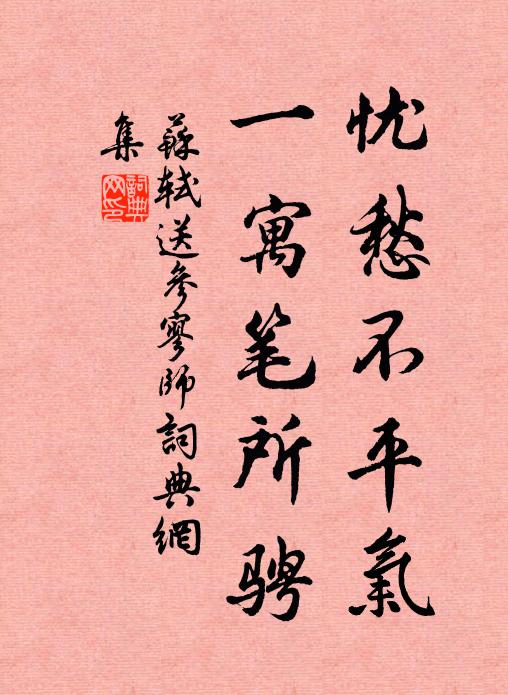 忧愁不平氣
一寓笔所骋
蘇轼送參寥師詞典網
集
詞典
网印